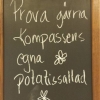 Prova gärna
Kompassens
egna
potatissallad